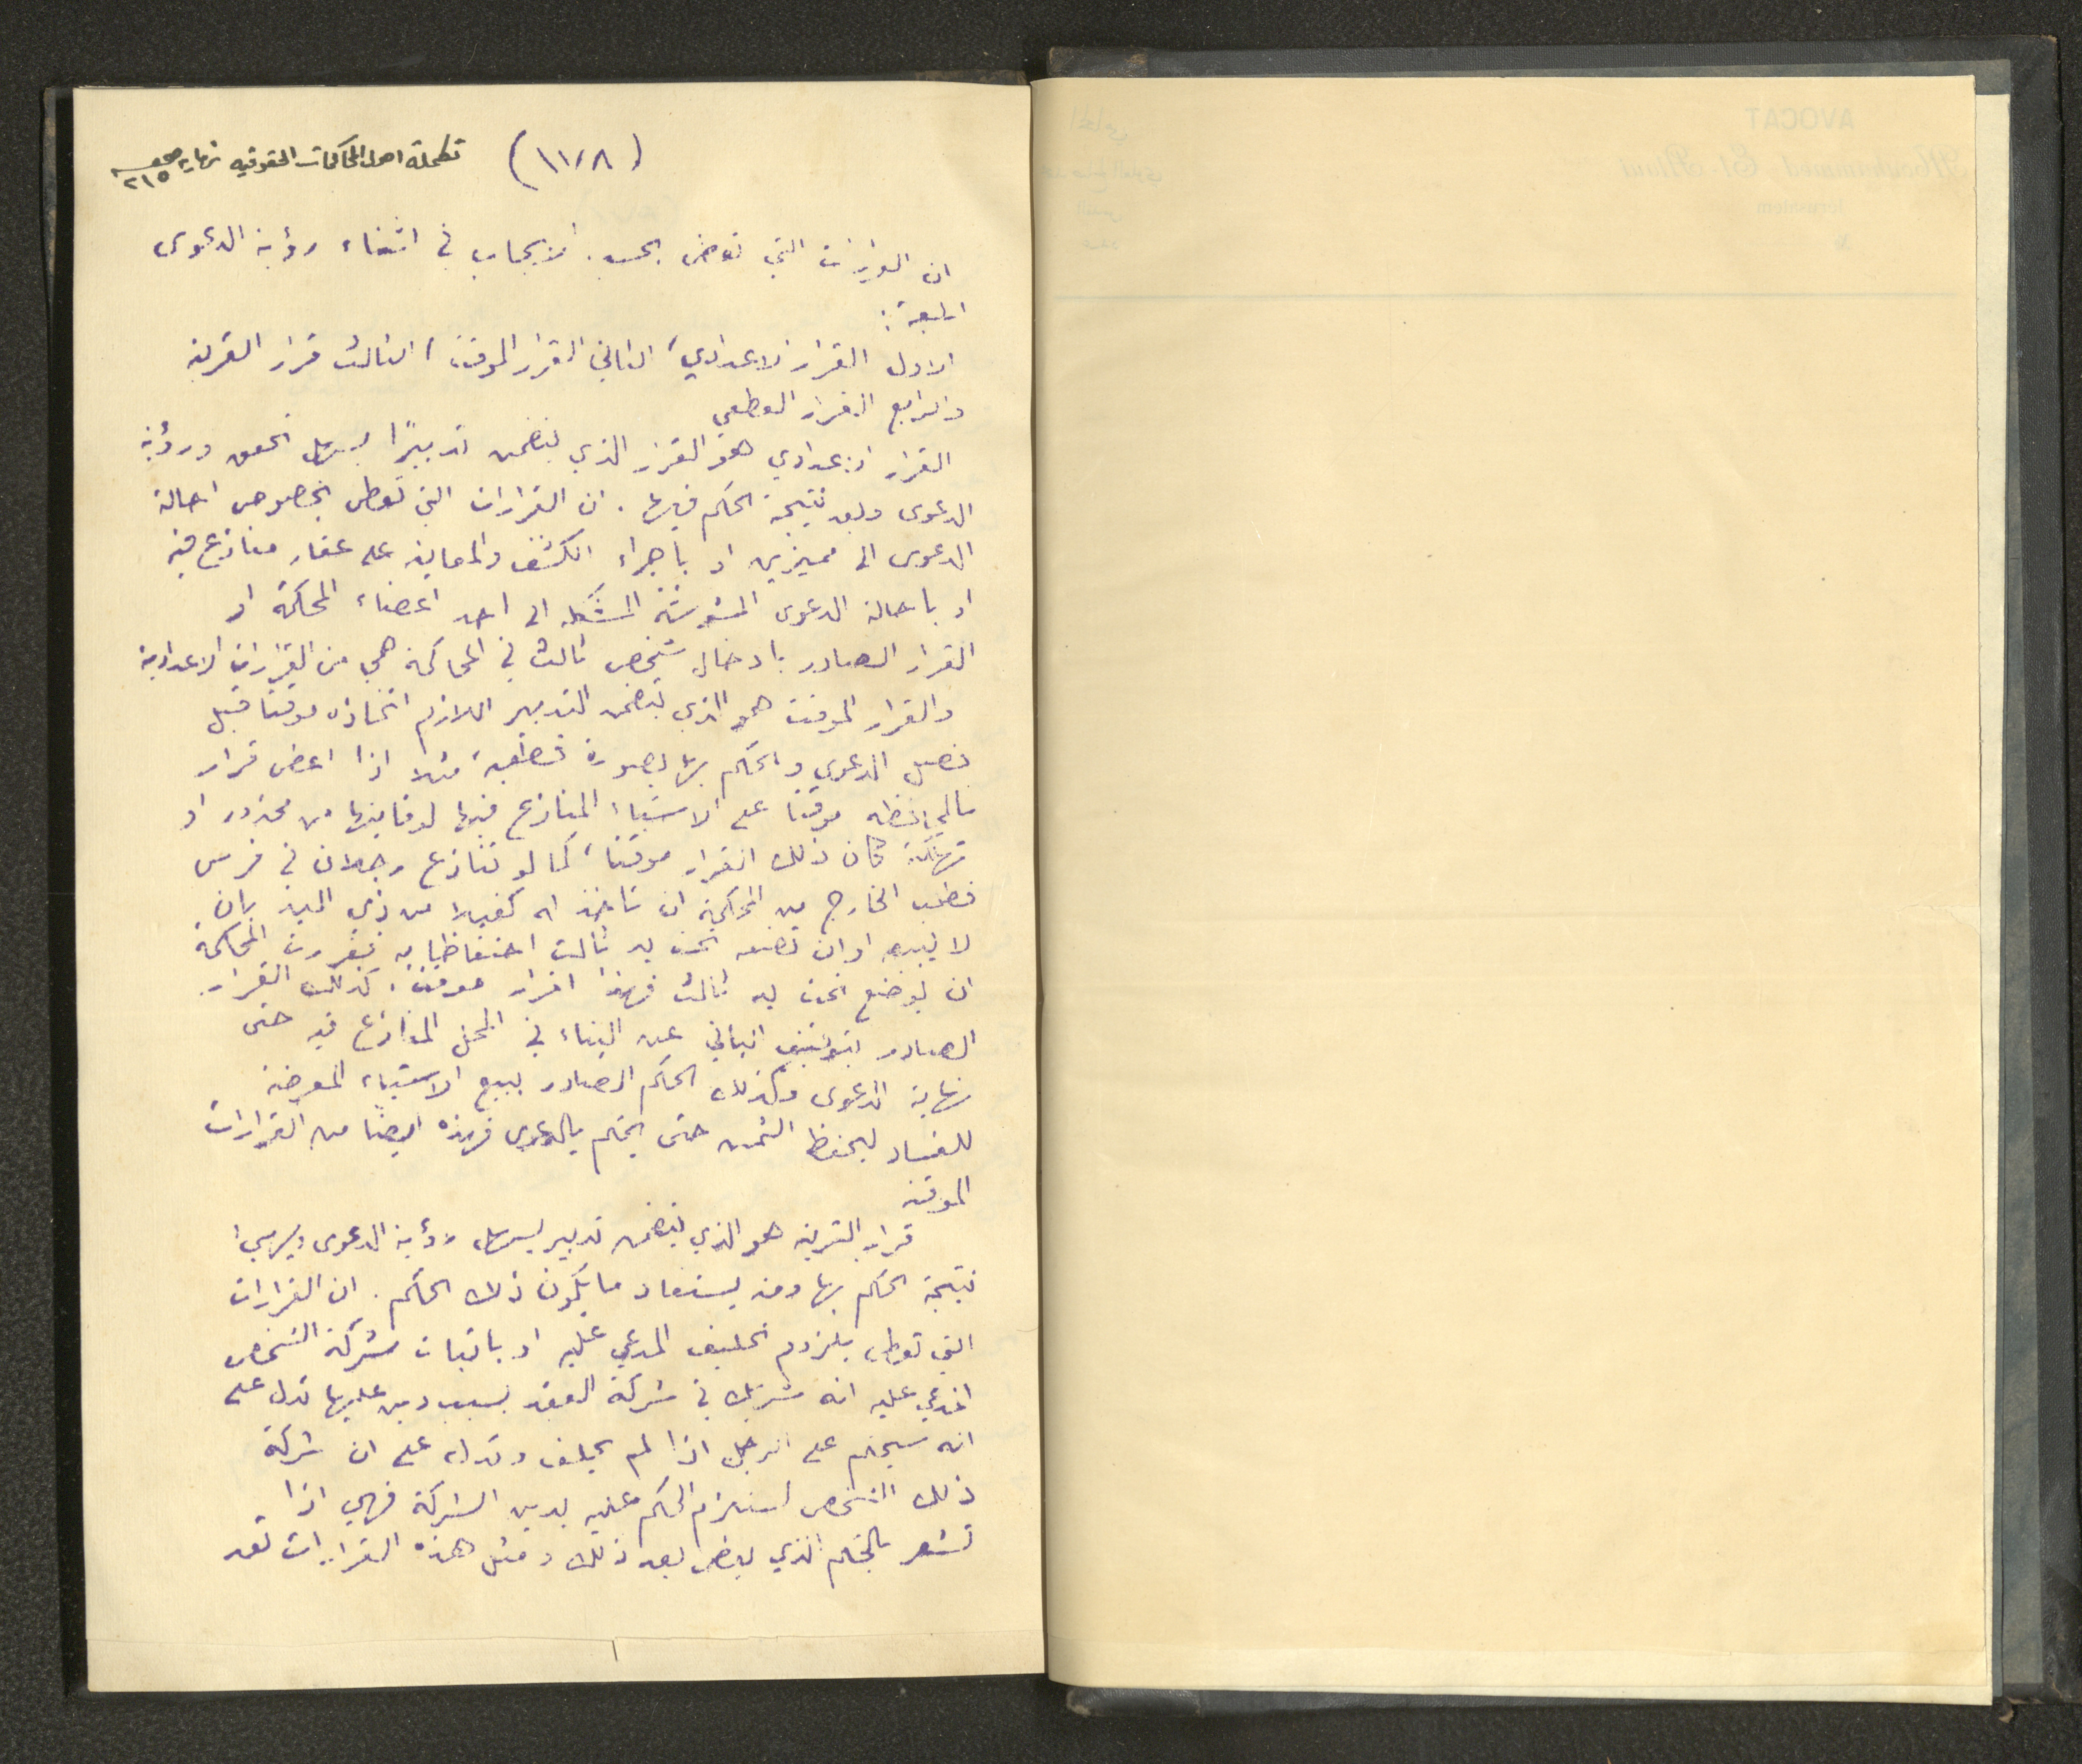 (١١٨) تكملة اصول المحاكمات الحقوقيه نهاية صحيفة ٢١٥
ان القرارات التي تعطى بحسب الايجاب في اثناء رؤية الدعوى
اربعة :
الاول القرار الاعدادي، الثاني القرار الموقت، الثالث قرار القرينة
والرابع القرار القطعي
القرار الاعدادي هو القرار الذي يتضمن تدبيرًا يسهل تحقق ورؤية
الدعوى ويعد نتيجة الحكم فيها . ان القرارات التي تعطى بخصوص احالة
الدعوى الى مميزين او باجراء الكشف والمعاينه على عقار منازع فيه
او باحالة الدعوى المشوشة المشكله الى احد اعضاء المحاكمة او
القرار الصادر بادخال شخص ثالث في المحاكمة هي من القرارات الاعدادية
والقرار الموقت هو الذي يتضمن التدبير اللازم اتخاذه موقتا قبل
فصل الدعوى والحكم بها بصورة قطعية، مثلا اذا اعطى قرار
بالمحافظه موقتا على الاشياء المتنازع فيها لوقايتها من محذور او
تهلكة كان ذلك القرار موقتا، كما لو تنازع رجلان في فرس
فطلب الخارج من المحكمة ان تاخذ له كفيلا من ذي اليد بان
لا يبيعه او ان تضعه تحت يد ثالث احتفاظا به فقررت المحاكمة
ان يوضع تحت يد ثالث فهذا القرار موقت، كذلك القرار
الصادر بتوقيف الباني عن البناء في المحل المنازع فيه حتى
نهاية الدعوى وكذلك الحكم الصادر ببيع الاشياء المعرضة
للفساد ليحفظ الثمن حتى يحكم بالدعوى فهذه ايضًا من القرارات
الموقته
قرار القرينه هو الذي يتضمن تدبير يسهل رؤية الدعوى ويهيئ
نتيجة الحكم بها ومنه يستفاد ما يكون ذلك الحكم . ان القرارات
التي تعطى بلزوم تحليف المدعي عليه او باثبات شركة الشخص
المدعي عليه انه شريك في شركة العقد بسبب دين عليها تدل على
انه سيحكم على الرجل اذا لم يحلف وتدل على ان شركة
ذلك الشخص تستلزم الحكم عليه بدين الشركة فهي اذا
تشعر بالحكم الذي يعطى بعد ذلك ومثل هذه القرارات تعد